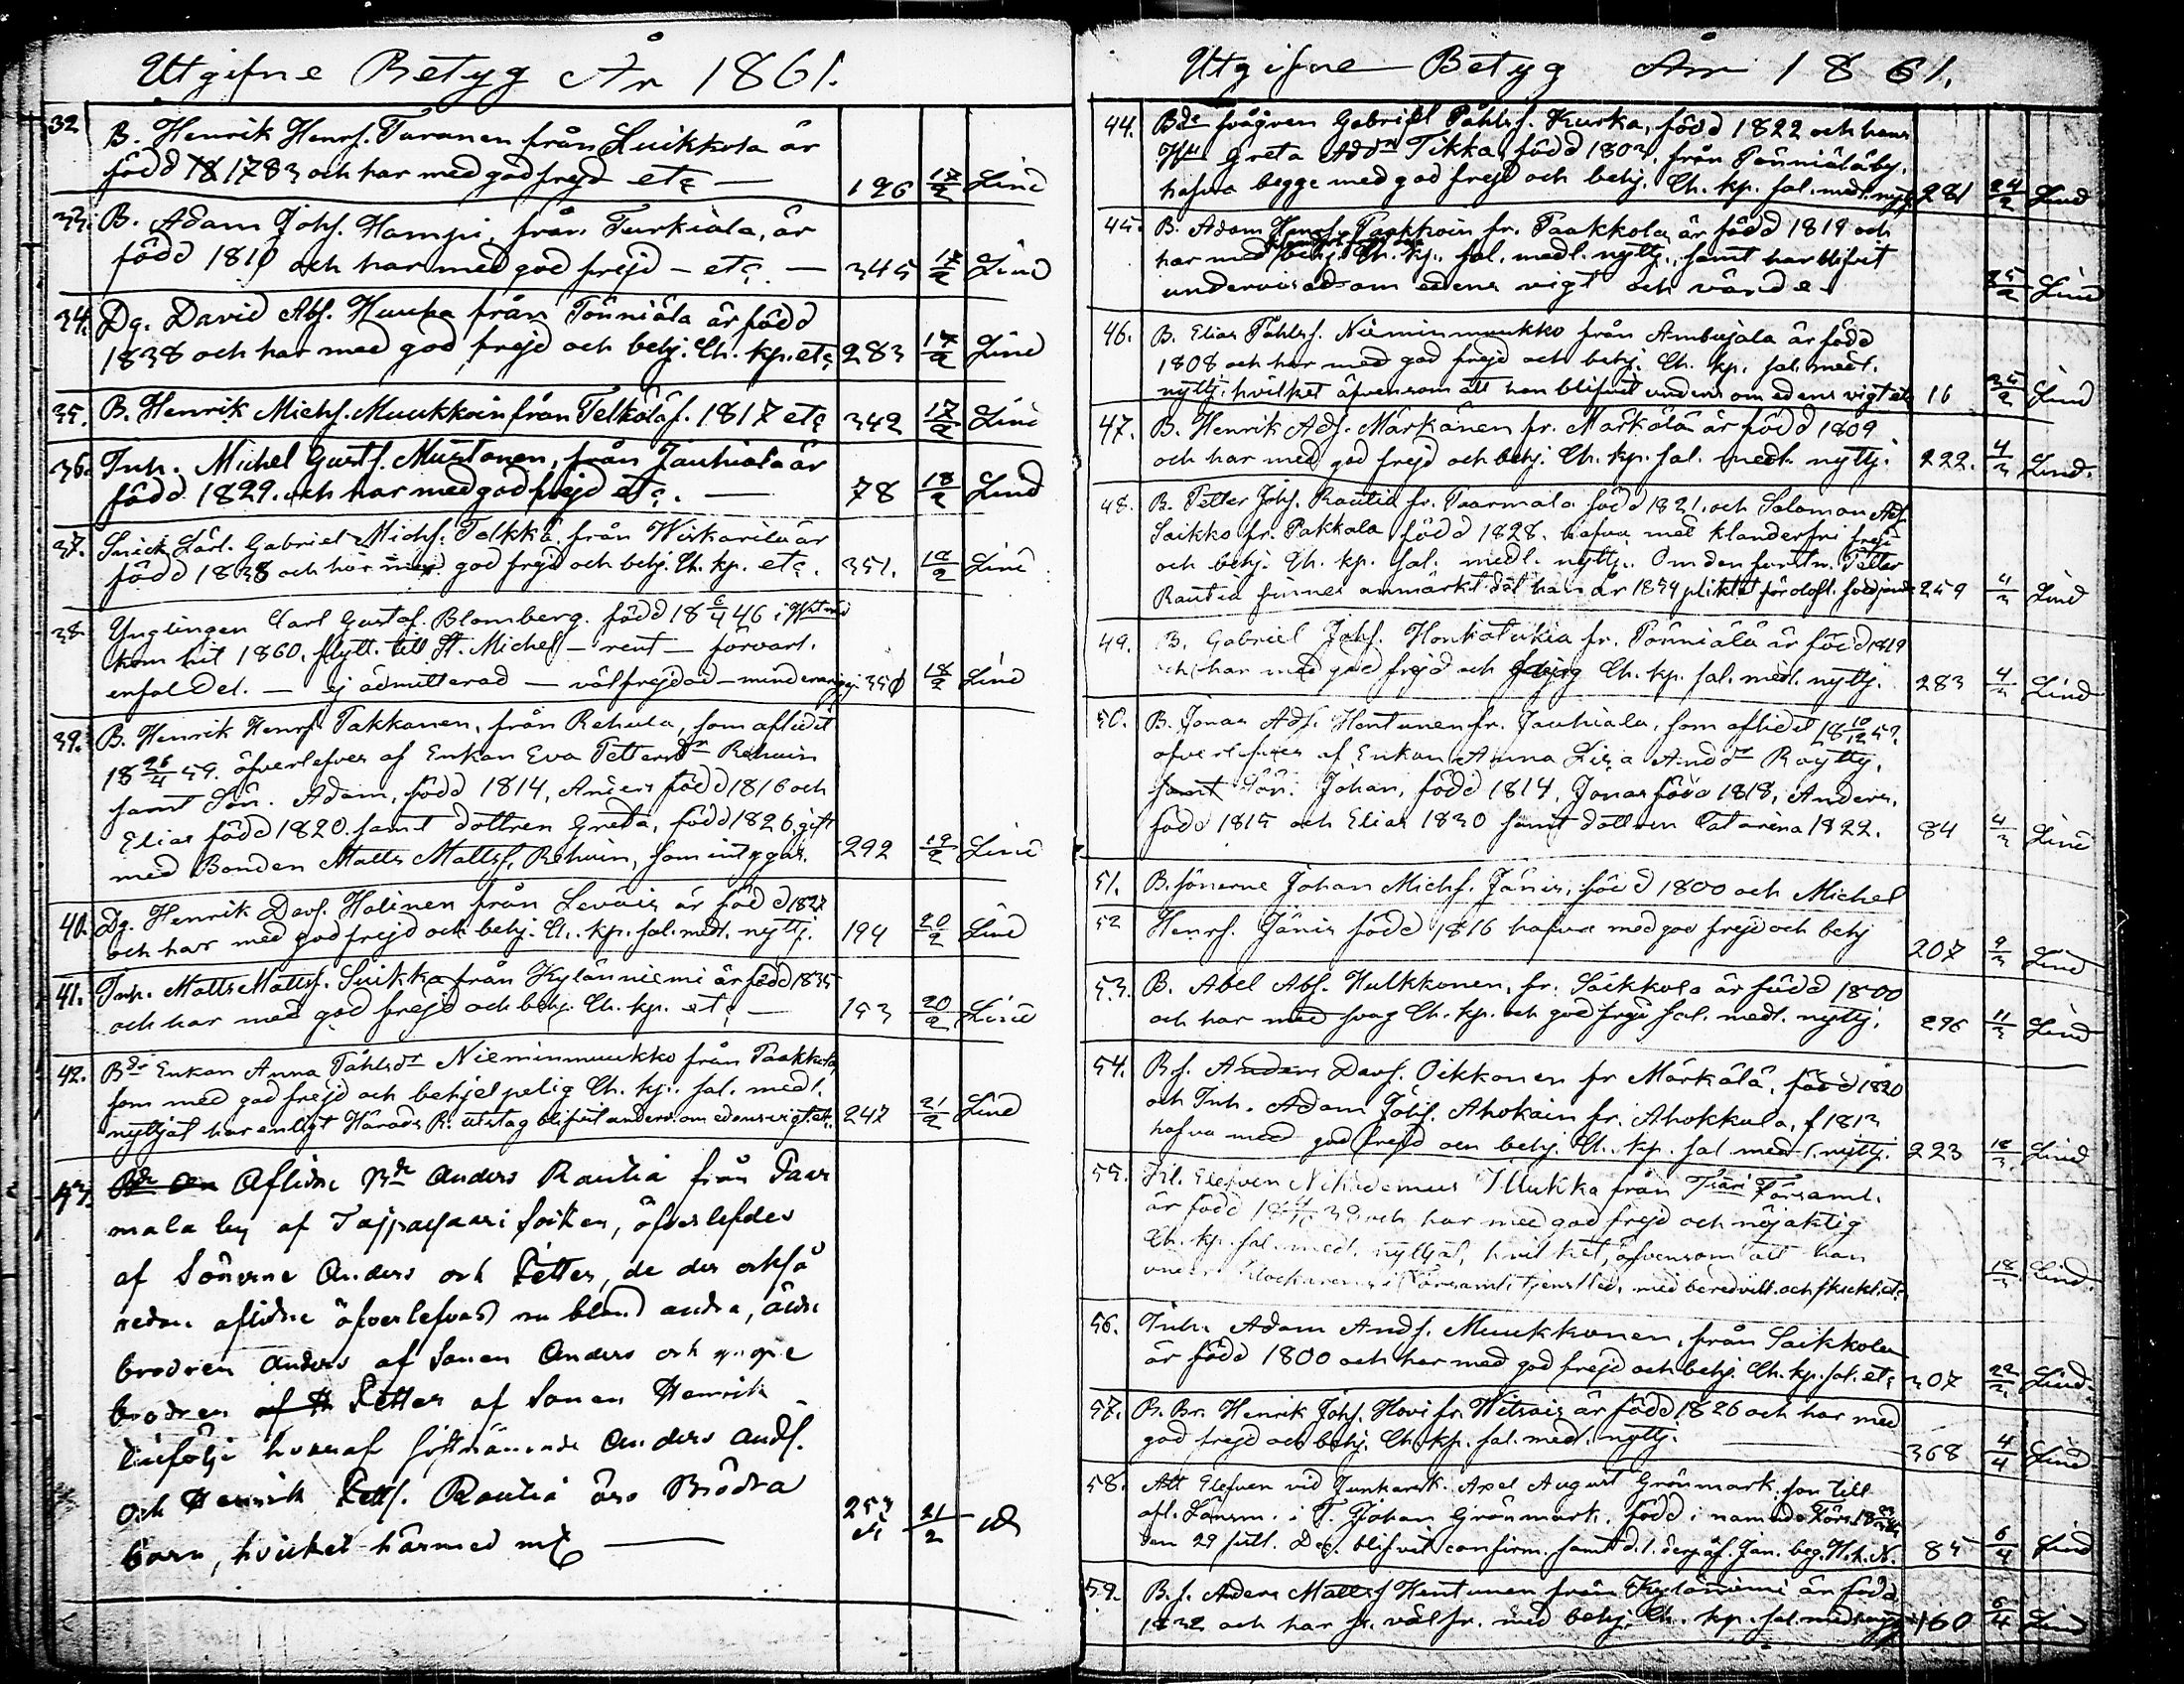 Utgifne Betyg År 1861.
32 B. Henrik Henrs. Turanen från Suikkola är
född 1783 och har med god frejd etc — 196 17/2 Lind
33. B. Adam Johs. Hampi, från Turkiala, är
född 1810 och har med god frejd — etc. — 345 17/2 Lind
34. Dg. David Abs. Huuha från Tönniälä är född
1838 och har med god frejd och behj. Ch. kp. etc 283 17/2 Lind
35. B. Henrik Michs. Muukkoin från Telkälä f. 1817 etc 342 17/2 Lind
36. Inh. Michel Gusts. Mustonen, från Jauhiala är
född 1829. och har med god frejd etc. — 78 18/2 Lind
37. Snick. Lärl. Gabriel Michs. Talkka från Wiskarila är
född 1838 och har med god frejd och behj. Ch. kp. etc. 351. 18/2 Lind
38 Ynglingen Carl Gustaf Blomberg född 18 6/4 46 i
kom hit 1860, flytt. till St. Michel — rent — försvarl.
enfaldel. — ej admitterad — välfrejdad — 350 18/2 Lind
39. B. Henrik Henrs. Pakkanen, från Rehula, som aflidit
18 26/4 59. öfverlefves af Enkan Eva Pettersdr Rehuin
samt Sön. Adam, född 1814, Anders född 1816 och
Elias född 1820. samt dottren Greta, född 1826, gift
med Bonden Matts Mattss. Rehuin, som intygas. 292 19/2 Lind
40. Dg. Henrik Davs. Halinen från Leväis är född 1827
och har med god frejd och behj. Ch. kp. sal. medl. nyttj. 194 20/2 Lind
41. Inh. Matts Mattss. Suikka från Kylänniemi är född 1835
och har med god frejd och behj. Ch. kp. etc — 153 20/2 Lind
42. Bde Enkan Anna Påhlsdr Nieminmuukko från Paakkola,
som med god frejd och behjelpelig Ch. kp. sal. medl.
nyttjat har enligt Härads R. utslag blifvit underv. om edens vigt etc. 247 21/2 Lind
43. Aflidne Bde Anders Rautia från Paar
mala by af Taipalsaari socken, öfverlefdes
af Sönerne Anders och Petter, de der också
redan aflidne öfverlefvas nu bland andra, äldre
brodren Anders af Sonen Anders och yngre
brodren af H Petter af Sonen Henrik
tillfölje hvaraf sistnämnde Anders Ands.
och Henrik Petts. Rautia äro Brödra
barn, hvilket härmed — 257 21/2
Utgifne Betyg År 1861.
44. Bde svågren Gabriel Påhls. Kurka, född 1822 och hans
Hu Greta Addr Tikka, född 1803. från Pönniälä by.
hafva begge med god frejd och behj. Ch. kp. sal. medl. nyttj. 281 24/2 Lind
45. B. Adam Henrs. Paakkoin fr. Paakkola, är född 1819 och
har med behj. Ch. kp. sal. medl. nyttj., samt har blifvit
undervisad om edens vigt och värde. 25/2 Lind
46. B. Elias Påhls. Nieminmuukko från Ambujala är född
1808 och har med god frejd och behj. Ch. kp. sal. medl.
nyttj. hvilket äfvensom att han blifvit underv. om edens vigt etc 16 25/2 Lind
47. B. Henrik Ads. Märkänen fr. Märkälä är född 1809
och har med god frejd och behj. Ch. kp. sal. medl. nyttj. 222. 4/3 Lind.
48. B. Petter Johs. Rautia fr. Paarmala född 1821. och Salomon Ads.
Saikko fr. Pakkala född 1828. hafva med klanderfri frejd
och behj. Ch. kp. sal. medl. nyttj. Om den förstn. Petter
Rautia finnes anmärkt att han år 1854 pliktat för olofl. 259 4/3 Lind
49. B. Gabriel Johs. Honkatukia fr. Pönniälä är född 1819
och har med god frejd och Ch. kp. sal. medl. nyttj. 283 4/3 Lind
50. B. Jonas Ads. Hentunen fr. Jauhiala, som aflidit 18 10/12 52.
öfverlefves af Enkan Anna Lisa Anddr Röytty,
samt Sön: Johan, född 1814, Jonas född 1818, Anders,
född 1815 och Elias 1830 samt dottren Catarina 1822. 84 4/3 Lind
51. B. sönerne Johan Michs. Jänis, född 1800 och Michel
52 Henrs. Jänis född 1816 hafva med god frejd och behj 207 9/3 Lind
53. B. Abel Abs. Hulkkonen, fr. Säikkola är född 1800
och har med svag Ch. kp. och god frejd sal. medl. nyttj. 296 11/3 Lind
54. Bs. Anders Davs. Oikkonen fr Märkälä, född 1820
och Inh. Adam Johs. Ahokain fr. Ahokkala, f 1813
hafva med god frejd och behj. Ch. kp. sal medl. nyttj. 223 18/3 Lind
55. Eleven Nikodemus Ilukka från församl.
är född och har med god frejd och nöjaktig
Ch. kp. sal. medl. nyttjat, hvilket, äfvensom att han
under Klockarens i Församl. tjenstled. med beredvill. och skickl. etc. 18/3 Lind.
56. Inh. Adam Ands. Muukkonen, från Saikkola
är född 1800 och har med god frejd och behj. Ch. kp. sal. etc 307 22/3 Lind.
57. B. Br. Henrik Johs. Hovi fr. Witsais är född 1826 och har med
god frejd och behj. Ch. kp. sal. medl. nyttj. — 368 4/4 Lind
58. Att Eleven vid Junkarsk. Axel August Grönmark, son till
afl. Länsm. i T. Johan Grönmark, född i nämnde Förs.
den 29 sistl. Dec. blifvit confirm. samt d. 1. Jan. beg. H. h. N. 85 6/4 Lind
59. B.s. Anders Mattss Hentunen från Kyläniemi är född
1832 och har fr. välfr. med behj. Ch. kp. sal. medl. nyttj. 160 6/4 Lind